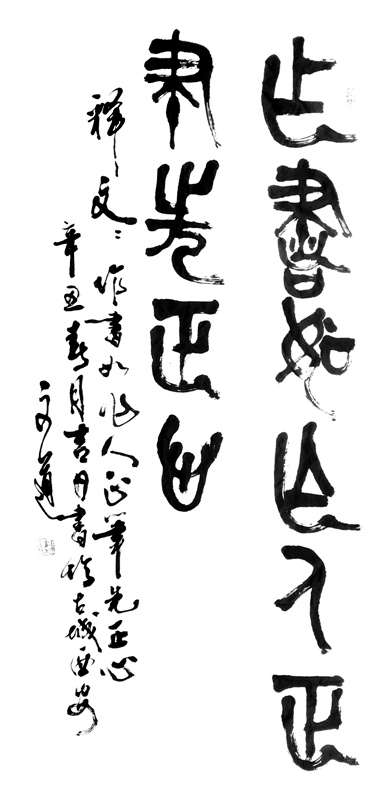 乍書如乍人正
聿先正心
釋文：作書如作人正筆先正心
辛丑春月吉日書於古城西安
文道